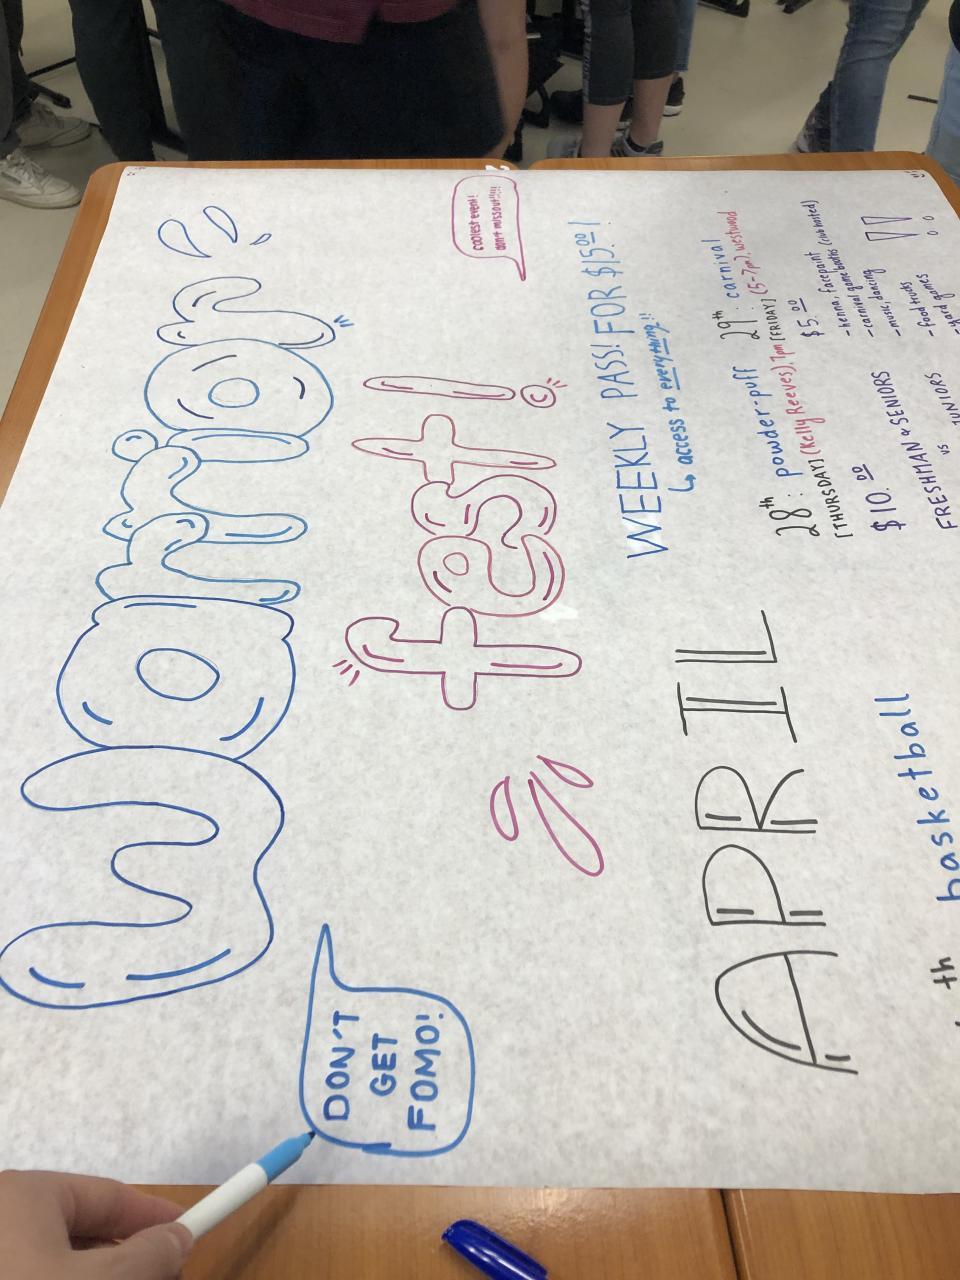 warrior
fest!
coolest event!
don't miss out!!!!!
DON'T
GET
FOMO!
WEEKLY PASS! FOR $15.00!
↳ access to everything!!
APRIL
28th: powder-puff
[THURSDAY] (Kelly Reeves), 7pm
$10.00
FRESHMAN & SENIORS
vs
JUNIORS
29th: carnival
[FRIDAY] (5-7pm), westwood
$5.00
- henna, facepaint
- carnival game booths (club hosted)
- music, dancing
- food trucks
- yard games
!!
th
basketball